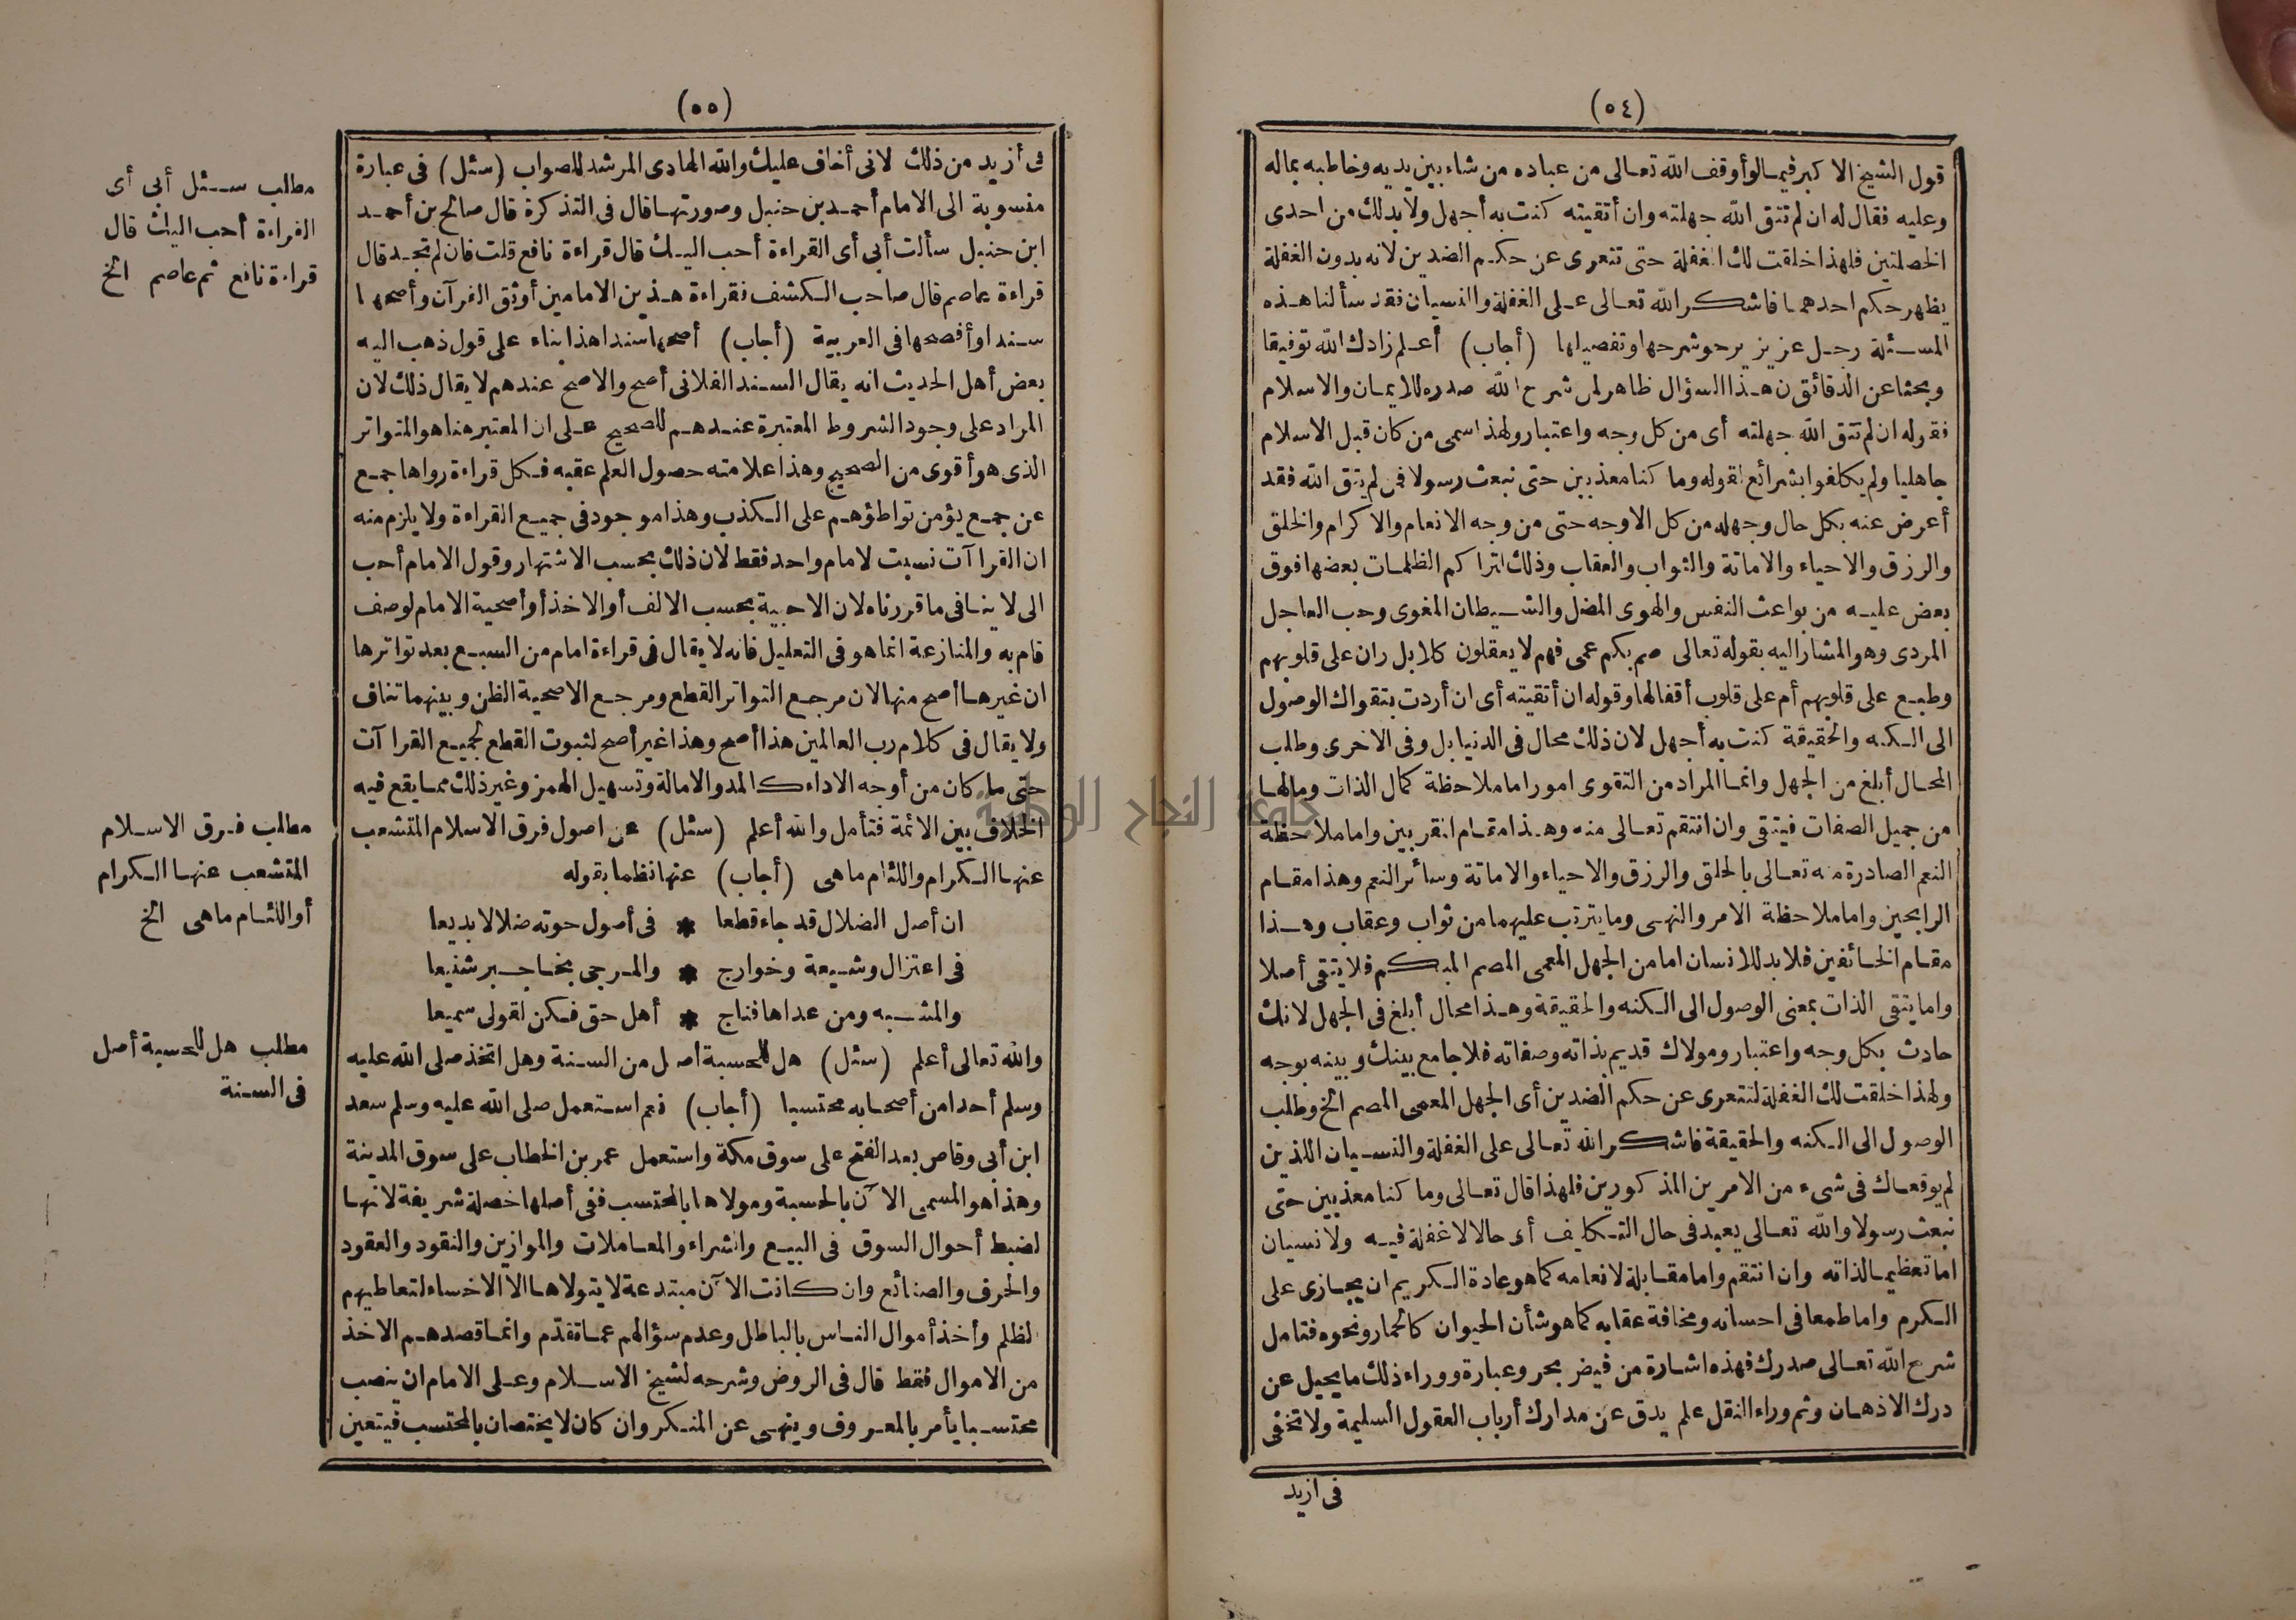 (٥٤)
قول الشيخ الاكبر فيما لو أوقف الله تعالى من عباده من شاء بين يديه وخاطبه بماله
وعليه فقال له ان لم تتق الله جهلته وان أتقيته كنت به أجهل ولا بد لك من احدى
الخصلتين فلهذا خلقت لك الغفلة حتى تتعرى عن حكم الضدين لانه بدون الغفلة
يظهر حكم احدهما فاشكر الله تعالى على الغفلة والنسيان فقد سألنا هذه
المسئلة رجل عزيز يرحو شرحها وتفصيلها (أجاب) أعلم زادك الله توفيقا
وبحثا عن الدقائق ن هذا السؤال ظاهر لمن شرح الله صدره للايمان والاسلام
فقوله ان لم تتق الله جهلته أى من كل وجه واعتبار ولهذا سمى من كان قبل الاسلام
جاهليا ولم يكلفوا بشرائع لقوله وما كنا معذبين حتى نبعث رسولا فمن لم يتق الله فقد
أعرض عنه بكل حال وجهله من كل الاوجه حتى من وجه الانعام والاكرام والخلق
والرزق والاحياء والاماتة والثواب والعقاب وذلك لتراكم الظلمات بعضها فوق
بعض عليه من بواعث النفس والهوى المضل والشيطان المغوى وحب العاجل
المردى وهو المشار اليه بقوله تعالى صم بكم عمى فهم لا يعقلون كلا بل ران على قلوبهم
وطبع على قلوبهم أم على قلوب أقفالها وقوله ان أتقيته أى ان أردت بتقواك الوصول
الى الكنه والحقيقة كنت به أجهل لان ذلك محال فى الدنيا بل وفى الاخرى وطلب
المحال أبلغ من الجهل وانما المراد من التقوى امور اما ملاحظة كمال الذات ومالها
من جميل الصفات فيتقى وان انتقم تعالى منه وهذا مقام المقربين واما ملاحظة
النعم الصادرة منه تعالى بالخلق والرزق والاحياء والاماتة وسائر النعم وهذا مقام
الرابحين واما ملاحظة الامر والنهى وما يترتب عليهما من ثواب وعقاب وهذا
مقام الخائفين فلا بد للانسان اما من الجهل المعمى المصم المبكم فلا يتقى أصلا
واما يتقى الذات بمعنى الوصول الى الكنه والحقيقة وهذا محال أبلغ فى الجهل لانك
حادث بكل وجه واعتبار ومولاك قديم بذاته وصفاته فلا جامع بينك وبينه بوجه
ولهذا خلقت لك الغفلة لتتعرى عن حكم الضدين أى الجهل المعمى المصم الخ وطلب
الوصول الى الكنه والحقيقة فاشكر الله تعالى على الغفلة والنسيان اللذين
لم يوقعاك فى شىء من الامرين المذكورين فلهذا قال تعالى وما كنا معذبين حتى
نبعث رسولا والله تعالى يعبد فى حال التكليف أى حالا لا غفلة فيه ولا نسيان
اما تعظيما لذاته وان انتقم واما مقابلة لانعامه كما هو عادة الكريم ان يجازى على
الكرم واما طمعا فى احسانه ومخافة عقابه كما هو شأن الحيوان كالحمار ونحوه فتامل
شرح الله تعالى صدرك فهذه اشارة من فيض بحر وعبارة ووراء ذلك ما يحيل عن
درك الاذهان وثم وراء النقل علم يدق عن مدارك أرباب العقول السليمة ولا تخفى
فى ازيد
(٥٥)
فى أزيد من ذلك لانى أخاف عليك والله الهادى المرشد للصواب (سئل) فى عبارة
منسوبة الى الامام أحمد بن حنبل وصورتها قال فى التذكرة قال صالح بن أحمد
ابن حنبل سألت أبى أى القراءة أحب اليك قال قراءة نافع قلت فان لم تجد قال
قراءة عاصم قال صاحب الكشف فقراءة هذين الامامين أوثق القرآن وأصحها
سندا وأفصحها فى العربية (أجاب) أصحها سندا هذا بناء على قول ذهب اليه
بعض أهل الحديث انه يقال السند الفلانى أصح والاصح عندهم لا يقال ذلك لان
المراد على وجود الشروط المعتبرة عندهم للصحيح على ان المعتبر هنا هو المتواتر
الذى هو أقوى من الصحيح وهذا علامته حصول العلم عقبه فكل قراءة رواها جمع
عن جمع يؤمن تواطؤهم على الكذب وهذا موجود فى جميع القراءة ولا يلزم منه
ان القراآت نسبت لامام واحد فقط لان ذلك بحسب الاشتهار وقول الامام أحب
الى لا ينافى ما قررناه لان الاحبية بحسب الالف أو الاخذ أو أصحية الامام لوصف
قام به والمنازعة انما هو فى التعليل فانه لا يقال فى قراءة امام من السبع بعد تواترها
ان غيرها أصح منها لان مرجع التواتر القطع ومرجع الاصحية الظن وبينهما تناف
ولا يقال فى كلام رب العالمين هذا أصح وهذا غير أصح لثبوت القطع لجميع القراآت
حتى ما كان من أوجه الاداء كالمد والامالة وتسهيل الهمز وغير ذلك مما يقع فيه
الخلاف بين الائمة فتأمل والله أعلم (سئل) عن اصول فرق الاسلام المتشعب
عنها الكرام واللئام ما هى (أجاب) عنها نظما بقوله
ان أصل الضلال قد جاء قطعا * فى أصول حوته ضلالا بديعا
فى اعتزال وشيعة وخوارج * والمرجى بخا جبر شنيعا
والمشبه ومن عداها فناج * أهل حق فكن لقولى سميعا
والله تعالى أعلم (سئل) هل للحسبة اصل من السنة وهل اتخذ صلى الله عليه
وسلم أحدا من أصحابه محتسبا (أجاب) نعم استعمل صلى الله عليه وسلم سعد
ابن أبى وقاص بعد الفتح على سوق مكة واستعمل عمر بن الخطاب على سوق المدينة
وهذا هو المسمى الآن بالحسبة ومولاها بالمحتسب ففى أصلها خصلة شريفة لانها
لضبط أحوال السوق فى البيع والشراء والمعاملات والموازين والنقود والعقود
والحرف والصنائع وان كانت الآن مبتدعة لا يتولاها الا الاخساء لتعاطيهم
لظلم وأخذ أموال الناس بالباطل وعدم سؤالهم عما تقدّم وانما قصدهم الاخذ
من الاموال فقط قال فى الروض وشرحه لشيخ الاسلام وعلى الامام ان ينصب
محتسبا يأمر بالمعروف وينهى عن المنكر وان كان لا يختصان بالمحتسب فيتعين
مطلب سئل أبى أى
القراءة أحب اليك قال
قراءة نافع ثم عاصم الخ
مطلب فرق الاسلام
المتشعب عنها الكرام
أو اللئام ما هى الخ
مطلب هل للحسبة أصل
فى السنة
جامعة النجاح الوطنية